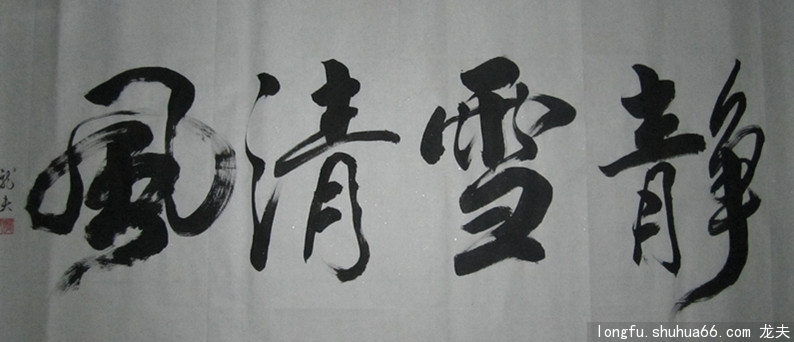 静雪清风
龙夫
longfu.shuhua66.com 龙夫